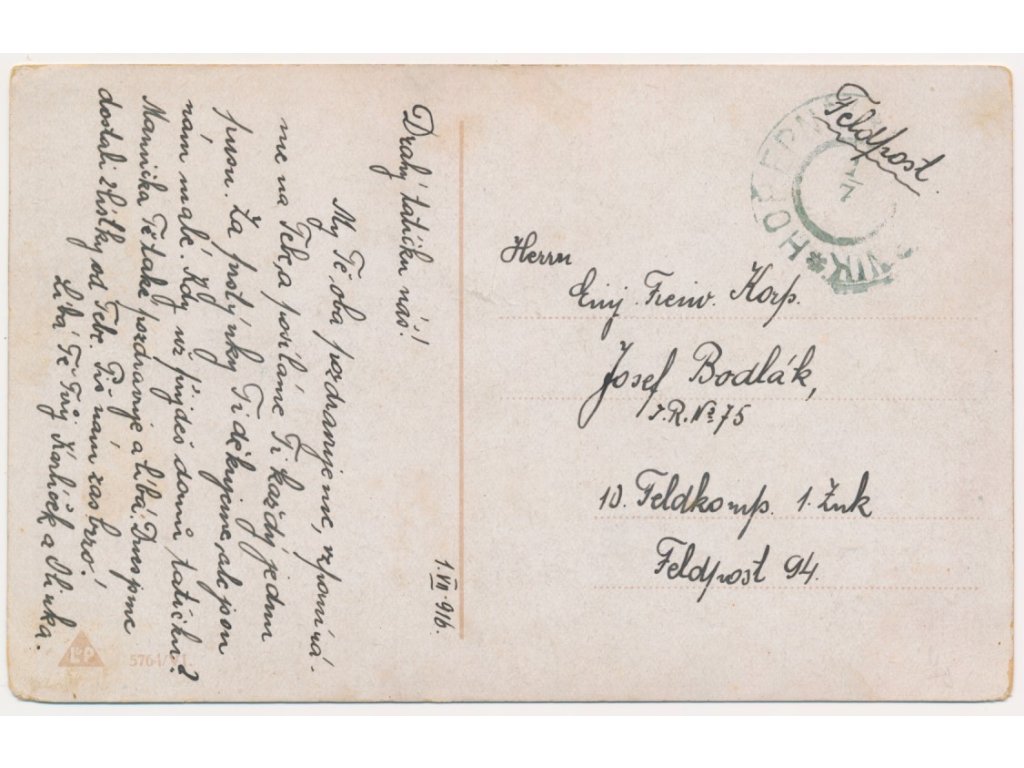 Feldpost.
Herrn
Einj. Freiw. Korp.
Josef Bodlák,
I.R. No 75
10. Feldkomp. 1. Zuk
Feldpost 94.
1.VII.916.
Drahý tatíčku náš!
My Tě oba pozdravujeme, vzpomíná-
me na Tebe, a posíláme Ti každý jednu
pusu. Za prstýnky Ti děkujeme, ale jsou
nám malé. Kdy už přijdeš domů tatíčku?
Maminka Tě také pozdravuje a líbá. Dnes jsme
dostali 2 lístky od Tebe. Piš nám zas brzo!
Líbá Tě Tvůj Karlíček a
L&P
5764/VI
HOL
NIK